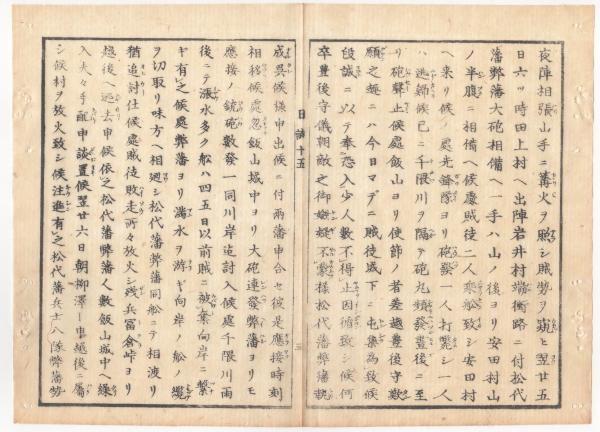 夜陣相張山手ニ篝火ヲ照シ賊勢ヲ窺ヒ翌廿五
日六ツ時田上村ヘ出陣岩井村端街路ニ付松代
藩弊藩大砲相備ヘ一手ハ山ノ後ヨリ安田村山
ノ半腹ニ相備ヘ候處賊徒二人乘船致シ安田村
ヘ来リ候ノ處先鋒隊ヨリ砲發一人打斃シ一人
ハ逃歸候已ニ千隈川ヲ隔テ砲丸頻發晝後ニ至
リ砲聲止候處飯山ヨリ使節ノ者差越豊後守歎
願之趣ニハ今日マデニ賊徒城下ニ屯集為致候
段誠ニ以テ奉恐入少人數不得止因循致シ候何
卒豊後守儀朝敵之御嫌疑不蒙様松代藩弊藩執
日誌十五
三
成異候様申出候ニ付両藩申合セ彼是應接時刻
相移候處忽飯山城中ヨリ大砲連發弊藩ヨリモ
應接ノ銃砲數發一同川岸迄討入候處千隈川雨
後ニテ漲水多ク船ハ四五日以前賊ニ被奪向岸ニ繋
ギ有之候處弊藩ヨリ満水ヲ游ギ向岸ノ船ノ纜
ヲ切取リ味方ヘ相廻シ松代藩弊藩同船ニテ相渡リ
猶追討仕候處賊徒敗走所々放火シ残兵冨倉峠ヨリ
越後ヘ遁去申候依之松代藩弊藩人數飯山城中ヘ繰
入夫々手配申談置候翌廿六日朝柳澤ヨリ申越後ニ属
シ候村ヲ放火致シ候注進有之松代藩兵士八隊弊藩勢